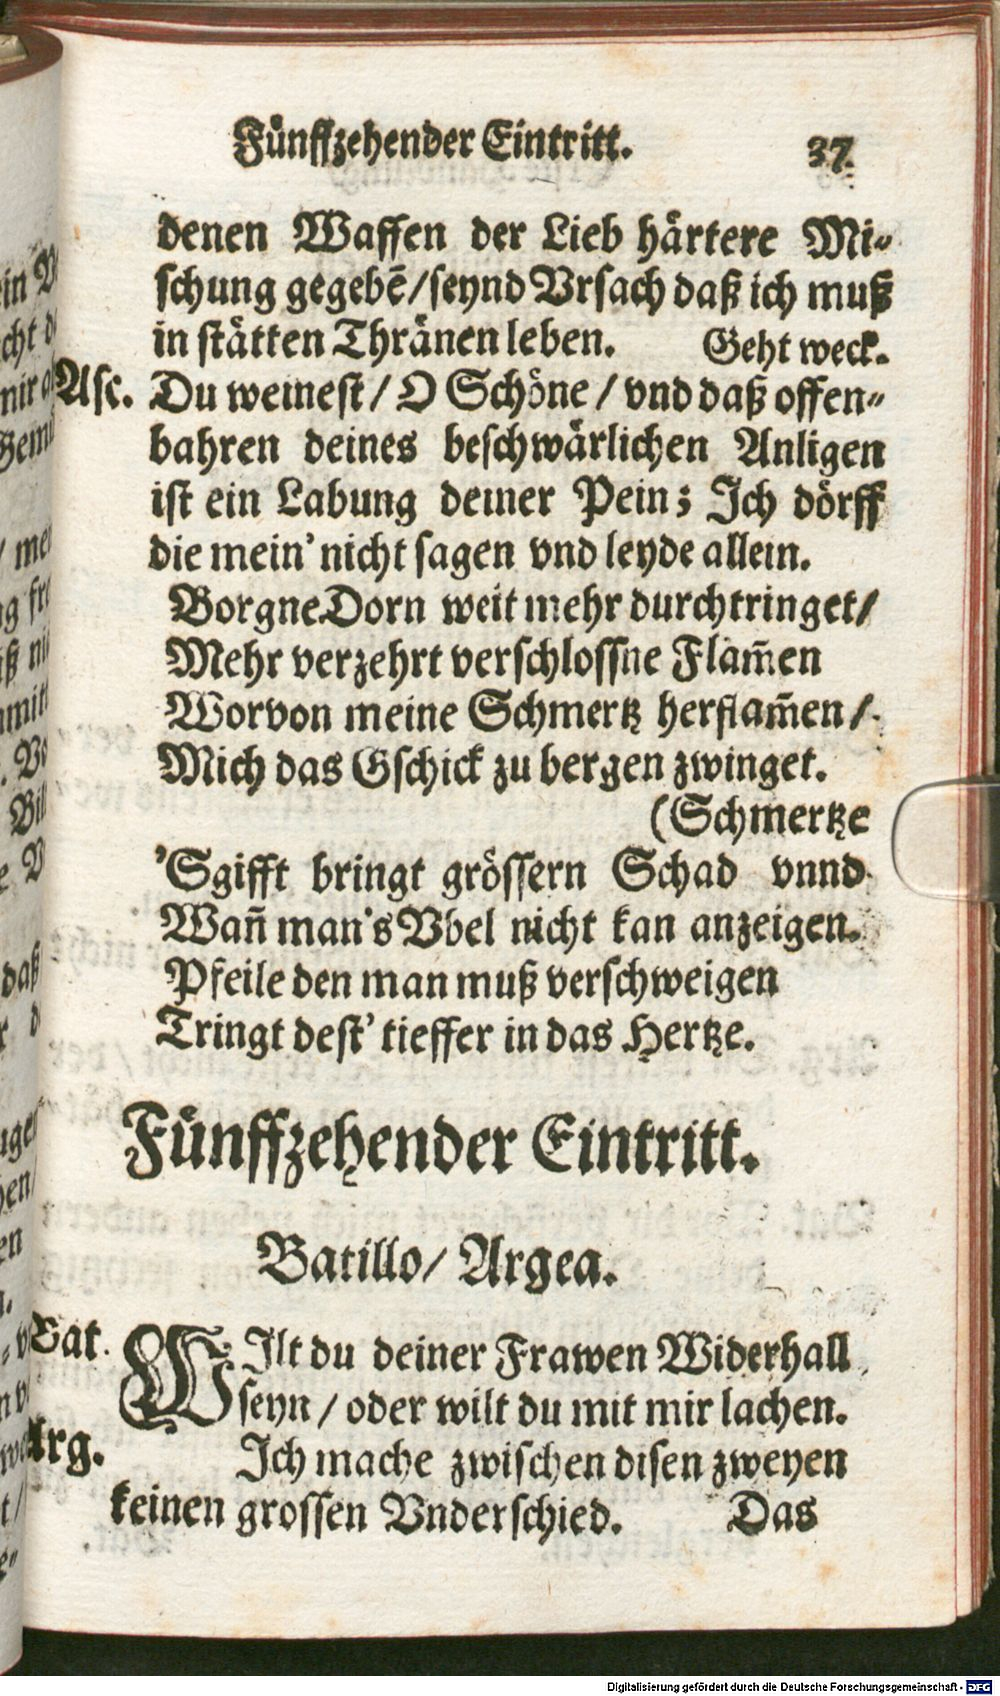 Fünffzehender Eintritt. 37.
denen Waffen der Lieb härtere Mi-
schung gegebē/seynd Vrsach daß ich muß
in stätten Thränen leben. Geht weck.
Asc. Du weinest/ O Schöne/ vnd daß offen-
bahren deines beschwärlichen Anligen
ist ein Labung deiner Pein; Ich dörff
die mein' nicht sagen vnd leyde allein.
Borgne Dorn weit mehr durchtringet/
Mehr verzehrt verschlossne Flam̄en
Worvon meine Schmertz herflam̄en/
Mich das Gschick zu bergen zwinget.
(Schmertze
'Sgifft bringt grössern Schad vnnd
Wan̄ man's Vbel nicht kan anzeigen.
Pfeile den man muß verschweigen
Tringt dest' tieffer in das Hertze.
Fünffzehender Eintritt.
Batillo/ Argea.
Bat. WIlt du deiner Frawen Widerhall
seyn/ oder wilt du mit mir lachen.
Arg. Ich mache zwischen disen zweyen
keinen grossen Vnderschied. Das
Digitalisierung gefördert durch die Deutsche Forschungsgemeinschaft - DFG